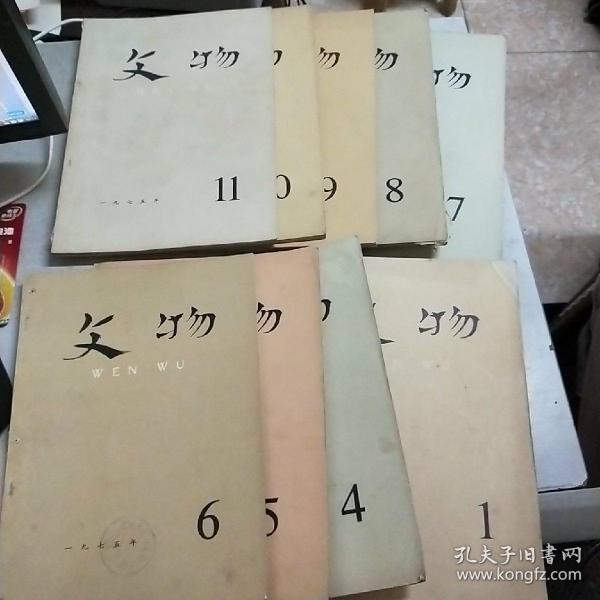 文物
11
一九七五年
物
0
物
9
物
8
物
7
文物
WEN WU
6
一九七五年
物
5
4
物
1
孔夫子旧书网
www.kongfz.com